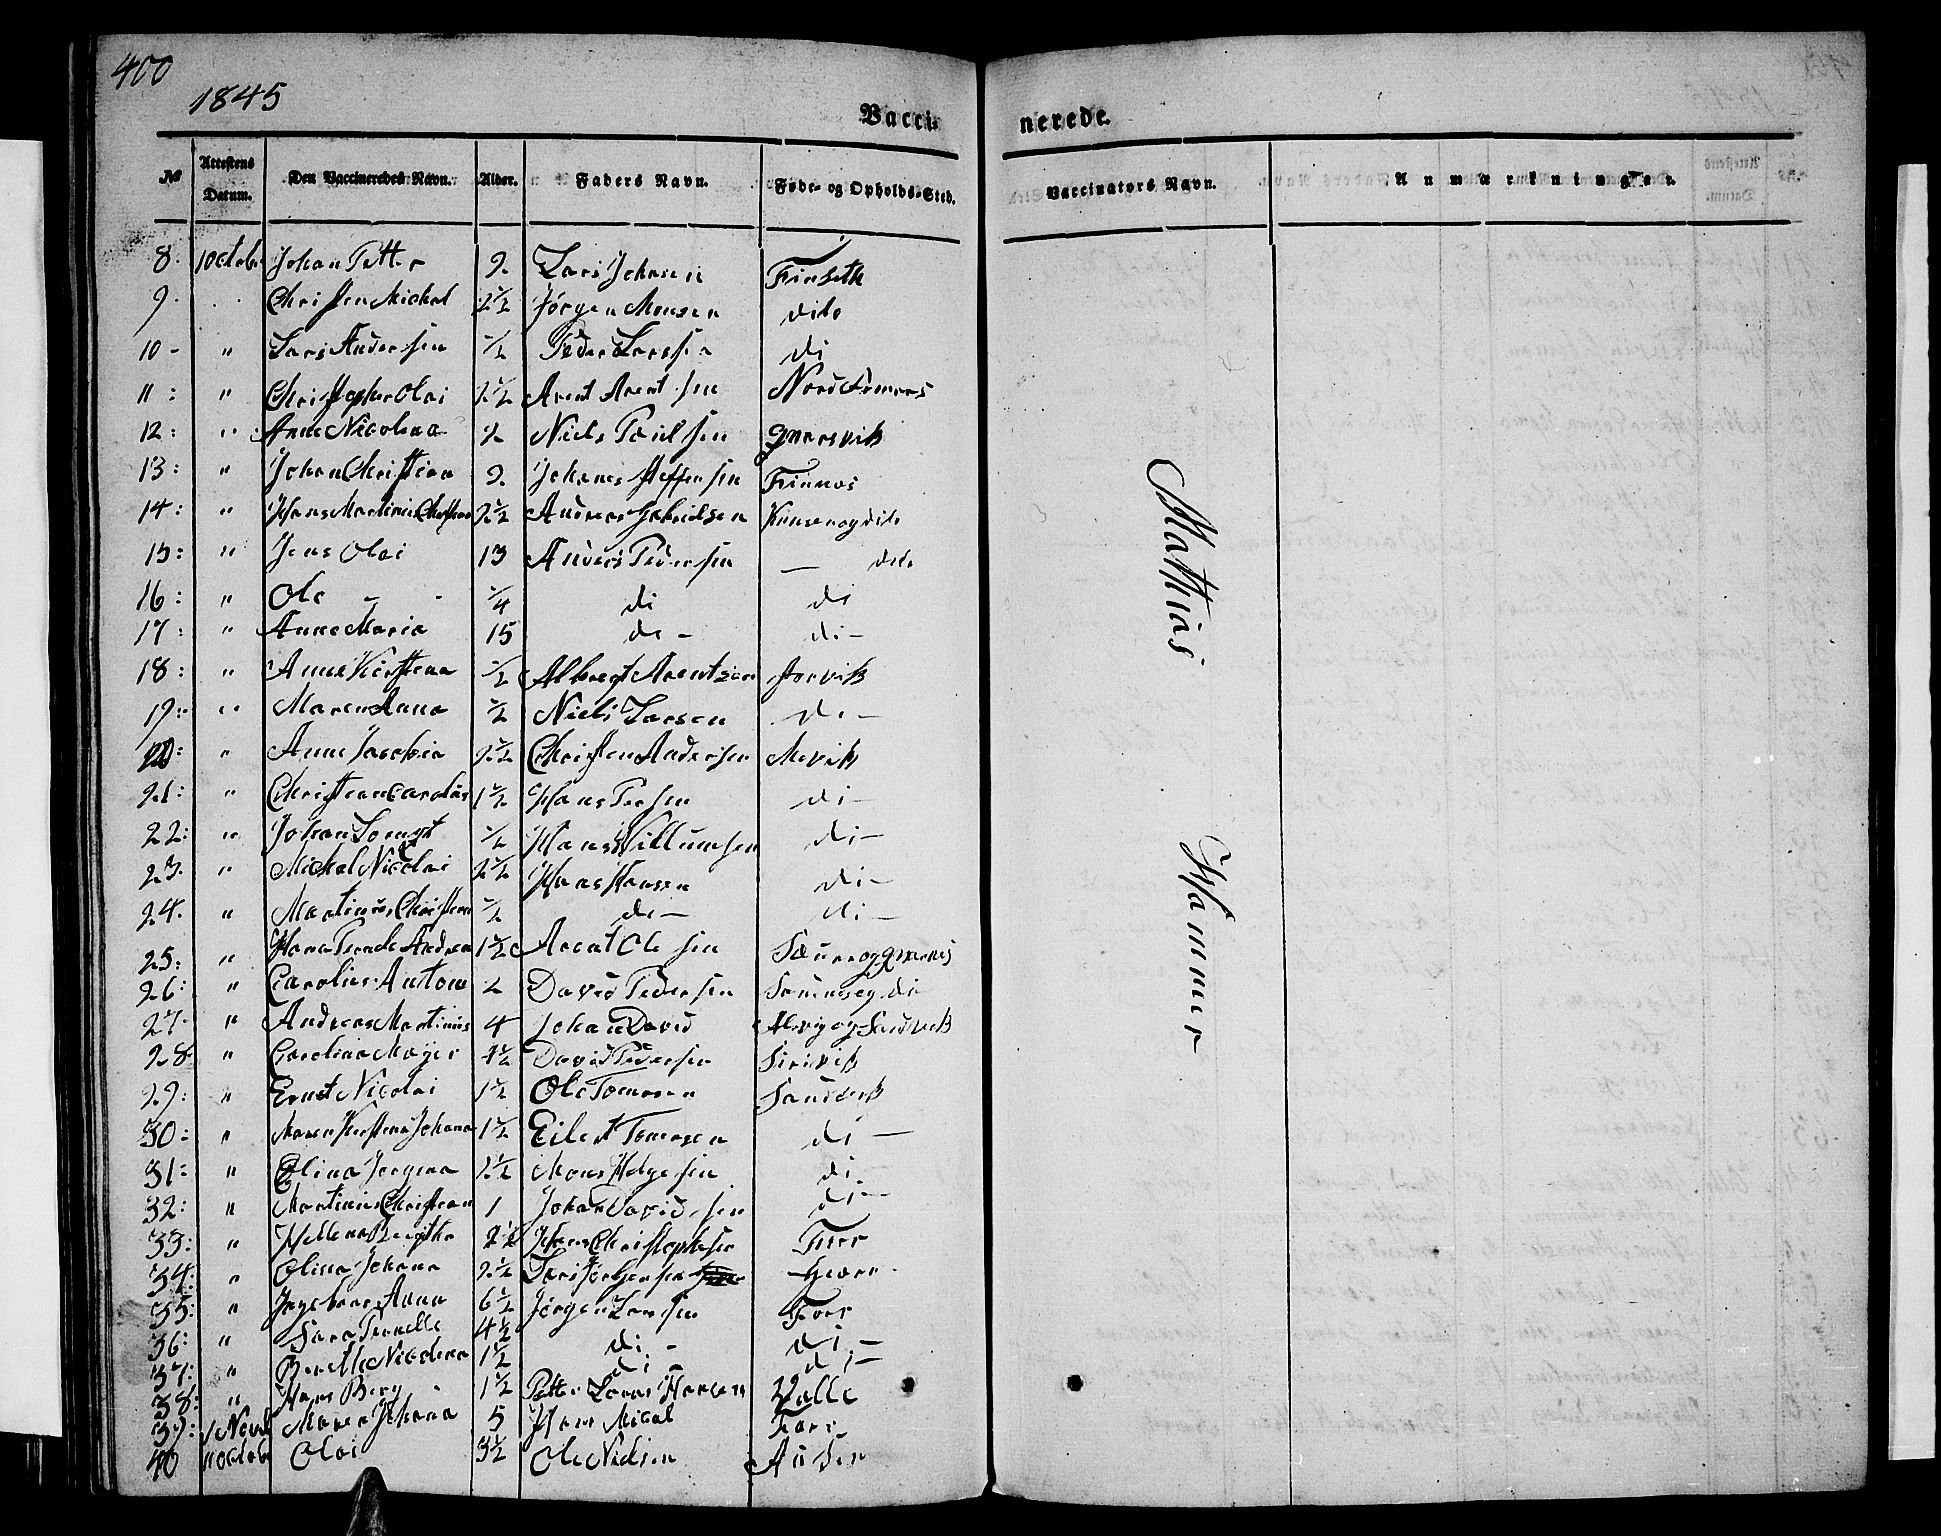 400
1845
Vacci-
nerede.
No Attestens Datum. Den Vaccineredes Navn. Alder. Faders Navn. Føde- og Opholds-Sted. Vaccinators Navn. Anmærkninger.
8. 1 Octobr Johan Petter 2 Lars Johnsen Finseth
9. Christen Michel 2½ Jörgen Monsen dito
10 - " Lars Andersen ½ Peder Larssen di
11: " Christopher Olai 2½ Arent Arentsen
12: " Anne Nicolina 2 Niels Poulsen
13: " Johan Christian 2 Johanes Steffensen Finnnæs
14: " Hans Martinus Christian 2½ Andreas Gabrielsen
15: " Jens Olai 13 Anders Pedersen — dito
16: " Ole - - ¼ di di
17: " Anne Maria 15 do - di -
18: " Anne Kirstena ½ Albregt Arentsen Storvik
19: " Maren Anna ½ Niels Larsen do -
20: " Anne Jacobia 2½ Christen Andersen Mevik
21: " Christian Carolus 1½ Hans Persen di -
22: " Johan Lorngt ½ Hans Willumsen di -
23. " Mickel Nicolai 2½ Hans Hansen di -
24. " Martinus Christian ½ do - di -
25: " Hans Andreas 1½ Arent Olsen
26: " Carolius Anton 2 David Pedersen
27. " Andreas Martinus 4 Johan David og Sandvik
28 " Carolina Mayer 4½ David Pedersen
29: " Ernst Nicolai 1½ Ole Tomesen Sandvik
30: " Maren Kirstena Johana 1½ Eilert Tomesen di —
31: " Elina Jorgina 2½ Mons Helgesen di
32: " Martinus Christian 1 Johan Davidsen di -
33: " Hellena Birgitha 2½ Hans Christophersen Fore
34: " Olina Johana 2½ Lars
35: " Ingebor Anna 6½ Jörgen Larsen Fore
36: " Sara Pernelle 4½ di - di -
37: " Berethe Nicolina 1½ di di -
38: " Hans Berg 1½ Petter Hansen Valle
39: 1 Novb Maren Johana 5 Hans Mical Fore
40 11 Octob Olai 3½ Ole Nielsen
Mathias Hammer